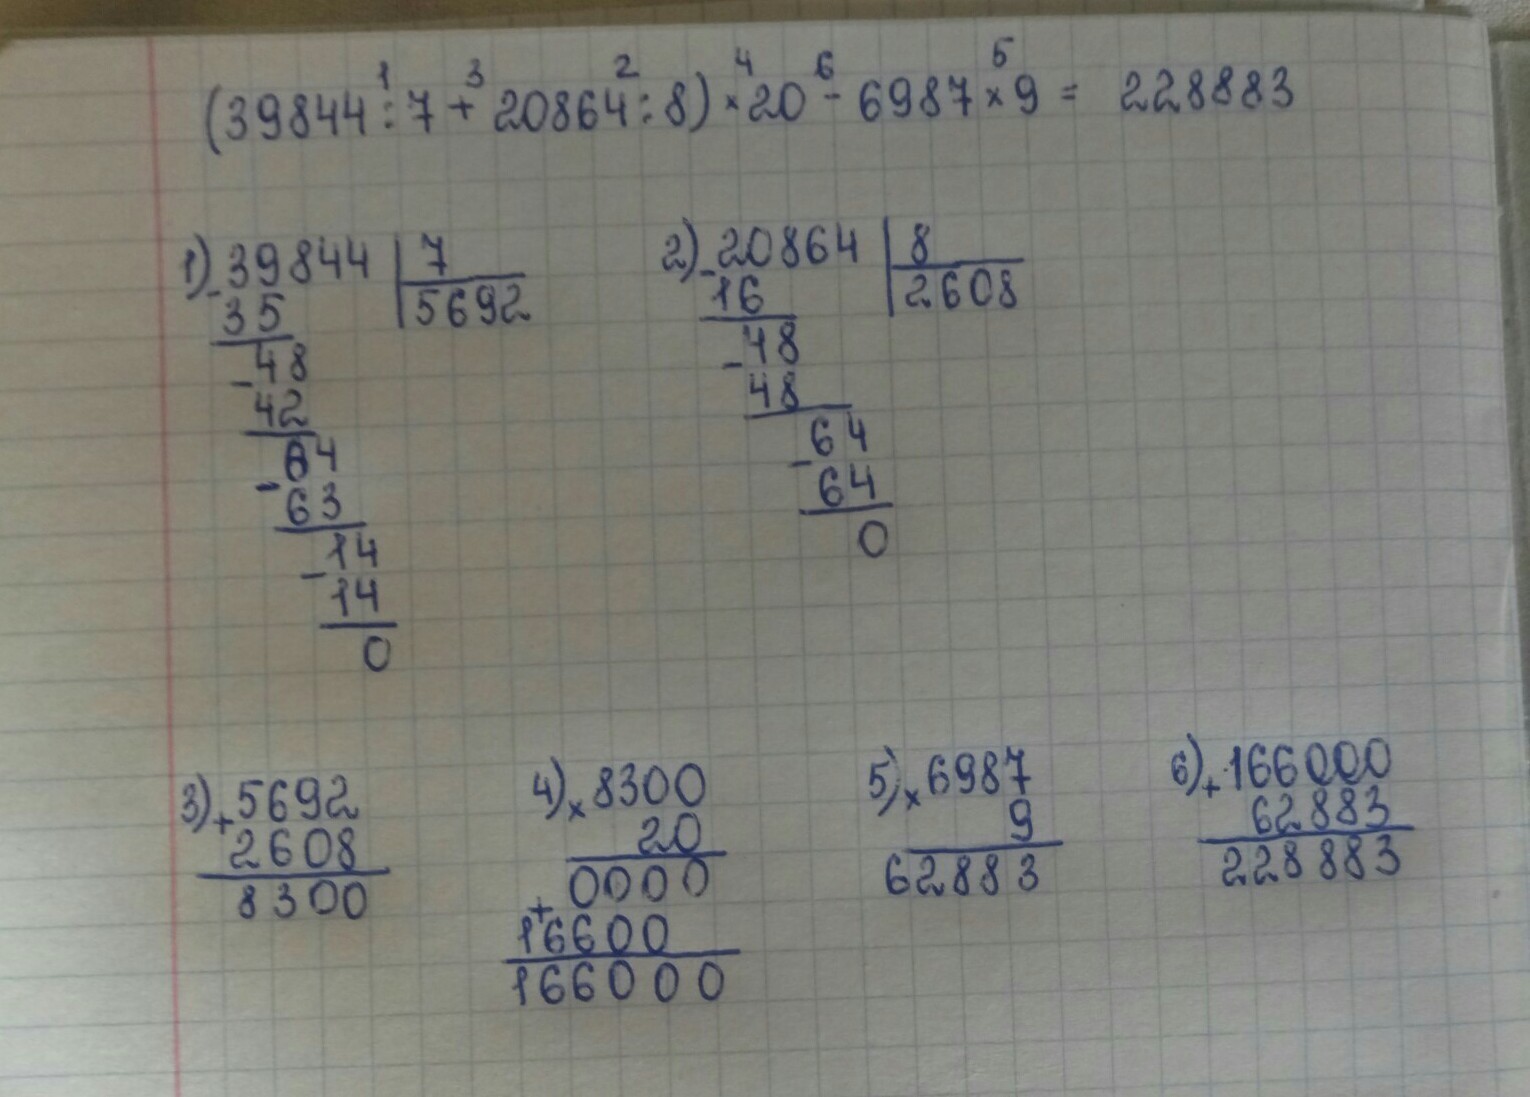 (39844:7+20864:8)×20-6987×9= 228883
1 3 2 4 6 5
1) -39844 | 7
35 | 5692
-48
42
-64
63
-14
14
0
2) -20864 | 8
16 | 2608
-48
48
-64
64
0
3) +5692
2608
8300
4) ×8300
20
0000
+
16600
166000
5) ×6987
9
62883
6) +166000
62883
228883